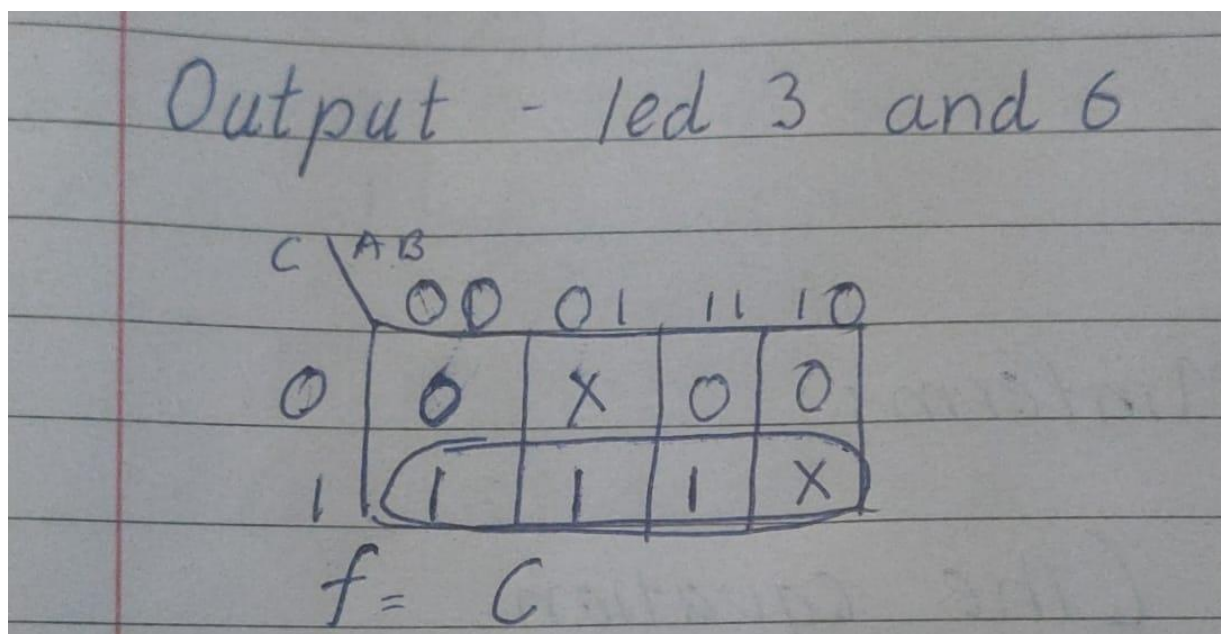 Output - led 3 and 6
C \ AB
00 01 11 10
0 0 X 0 0
1 1 1 1 X
f = C